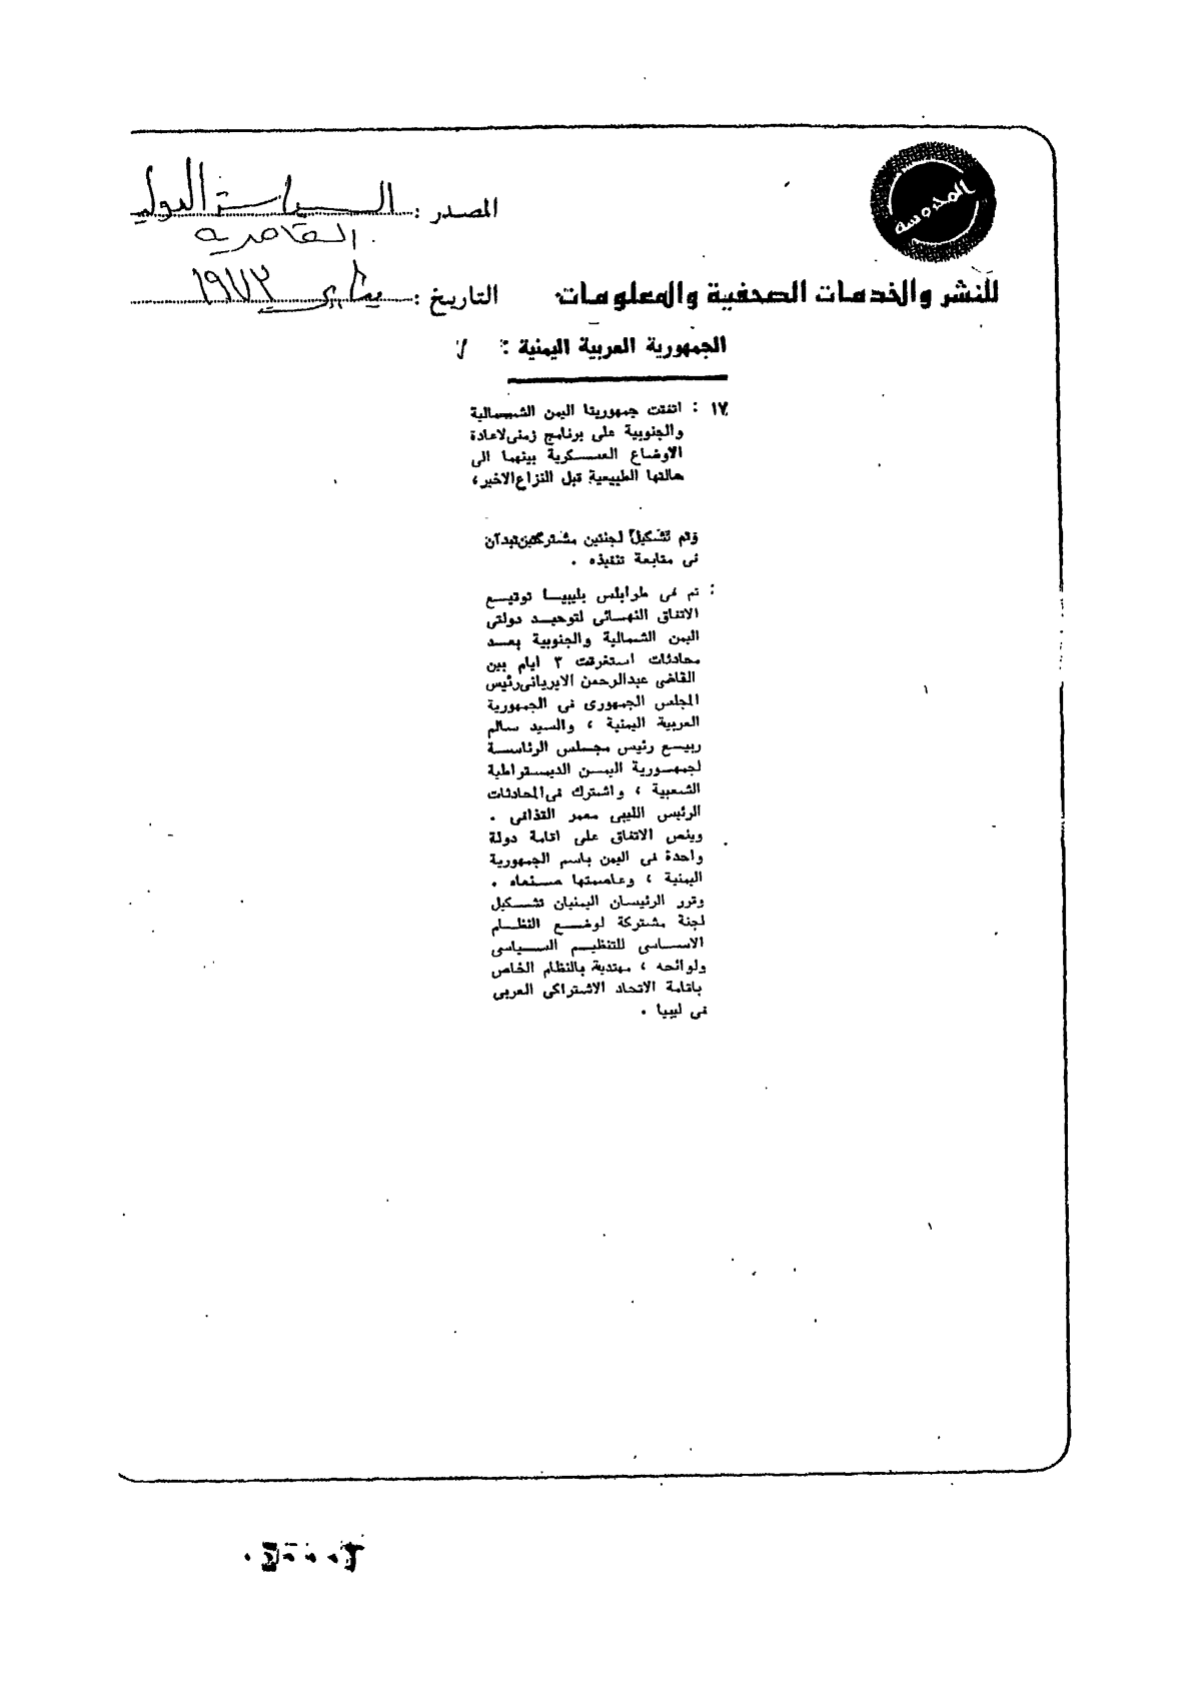 المحروسة
المصدر : السياسة الدولي
القاهرية
للنشر والخدمات الصحفية والمعلومات
التاريخ : يناير ١٩٧٣
الجمهورية العربية اليمنية :
١٧ : اتفقت جمهوريتا اليمن الشمالية
والجنوبية على برنامج زمنى لاعادة
الاوضاع العسكرية بينهما الى
حالتها الطبيعية قبل النزاع الاخير ،
وتم تشكيل لجنتين مشتركتين تبدآن
فى متابعة تنفيذه .
: تم فى طرابلس بليبيا توقيع
الاتفاق النهائى لتوحيد دولتى
اليمن الشمالية والجنوبية بعد
محادثات استغرقت ٣ ايام بين
القاضى عبدالرحمن الايريانى رئيس
المجلس الجمهورى فى الجمهورية
العربية اليمنية ، والسيد سالم
ربيع رئيس مجلس الرئاسة
لجمهورية اليمن الديمقراطية
الشعبية ، واشترك فى المحادثات
الرئيس الليبى معمر القذافى .
وينص الاتفاق على اقامة دولة
واحدة فى اليمن باسم الجمهورية
اليمنية ، وعاصمتها صنعاء .
وقرر الرئيسان اليمنيان تشكيل
لجنة مشتركة لوضع النظام
الاساسى للتنظيم السياسى
ولوائحه ، مهتدية بالنظام الخاص
باقامة الاتحاد الاشتراكى العربى
فى ليبيا .